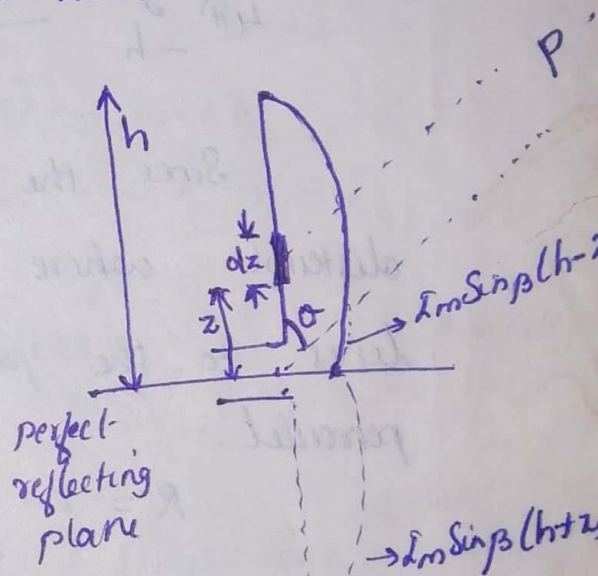 P
h
dz
z
θ
Im Sin β (h-z
perfect
reflecting
plane
Im Sin β (h+z